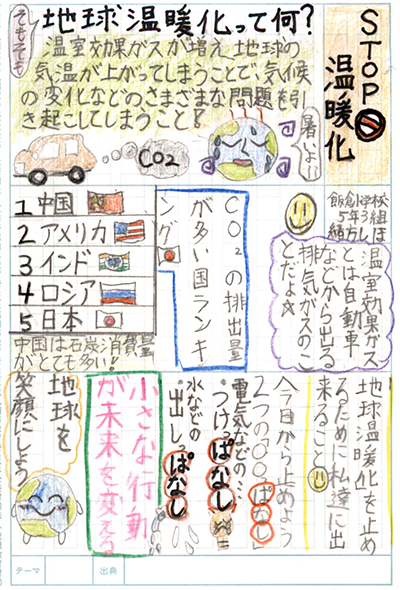 STOP
温暖化
そもそも
地球温暖化って何?
温室効果ガスが増え、地球の
気温が上がってしまうことで、気候
の変化などのさまざまな問題を引
き起こしてしまうこと!
暑いよ…
CO2
5年3組
温室効果ガス
とは自動車
などから出る
排気ガスのこ
とだよ☆
CO₂の排出量
が多い国ランキ
ング
1 中国
2 アメリカ
3 インド
4 ロシア
5 日本
中国は石炭消費量
がとても多い!
地球温暖化を止め
るために私達に出
来ること
今日から止めよう
2つの「〇〇ぱなし」
電気などの…
・つけっぱなし
水などの
・出しっぱなし
小さな行動
が未来を変える
地球を
笑顔にしよう
テーマ
出典